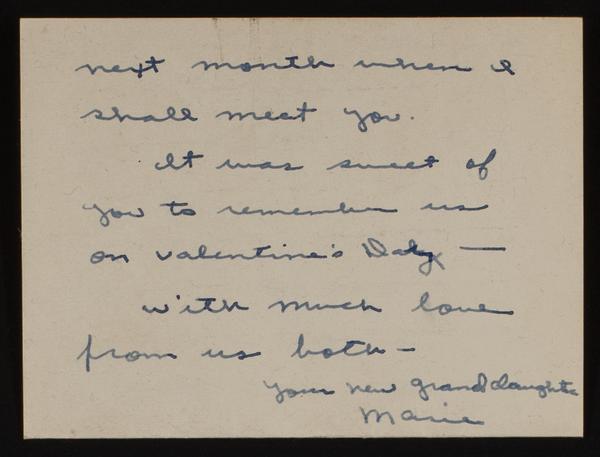 next month when I
shall meet you.
It was sweet of
you to remember us
on Valentine's Day —
with much love
from us both —
your new granddaughter
Marie